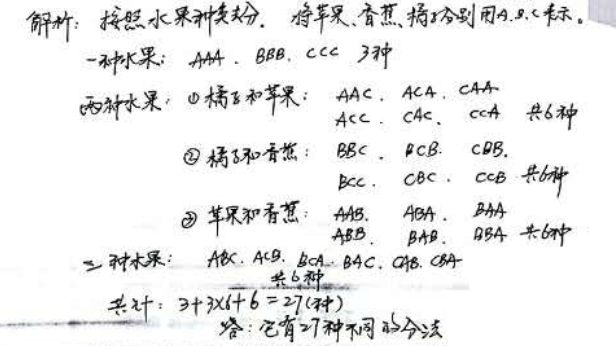 解析：按照水果种类分．将苹果、香蕉、橘子分别用A.B.C表示。
一种水果：AAA．BBB．CCC 3种
两种水果：①橘子和苹果：AAC．ACA．CAA
ACC．CAC．CCA 共6种
②橘子和香蕉：BBC．BCB．CBB．
BCC．CBC．CCB 共6种
③苹果和香蕉：AAB．ABA．BAA
ABB．BAB．BBA 共6种
三种水果：ABC．ACB．BCA．BAC．CAB．CBA
共6种
共计：3+3×6+6=27(种)
答：它有27种不同的分法